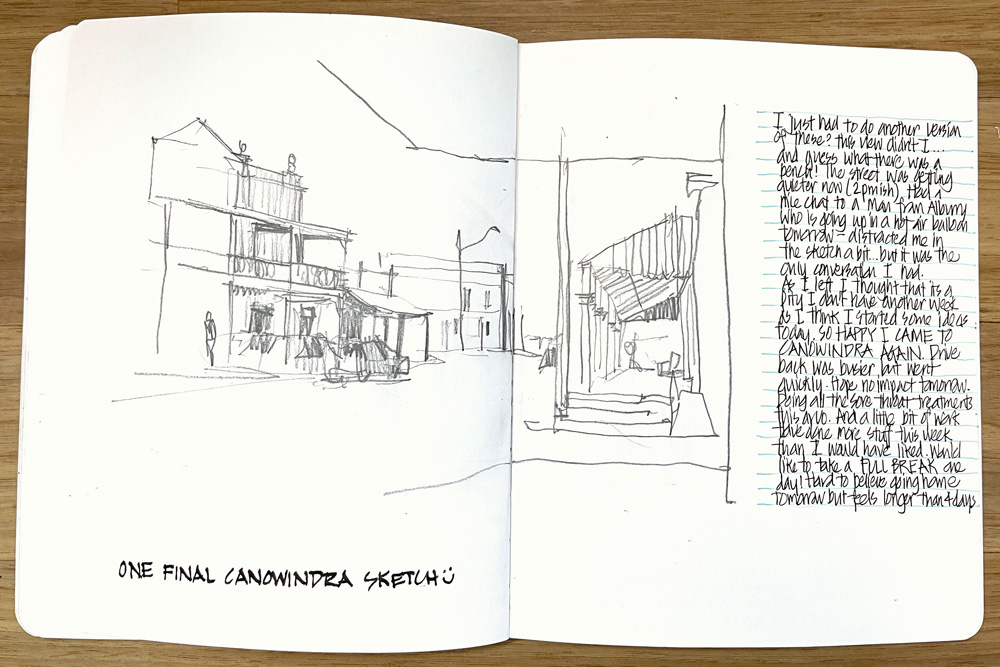 ONE FINAL CANOWINDRA SKETCH
I just had to do another version
of these? this view didn't I...
and guess what there was a
pencil! The street was getting
quieter now (2pmish). Had a
nice chat to a man from Albury
who is going up in a hot air balloon
tomorrow - distracted me in
the sketch a bit... but it was the
only conversation I had.
As I left I thought that its a
pity I don't have another week
as I think I started some ideas
today. SO HAPPY I CAME TO
CANOWINDRA AGAIN. Drive
back was busier but went
quickly. Hope no impact tomorrow.
Doing all the sore throat treatments
this arvo. And a little bit of work
have done more stuff this week
than I would have liked. Would
like to take a FULL BREAK one
day! Hard to believe going home
tomorrow but feels longer than 4 days